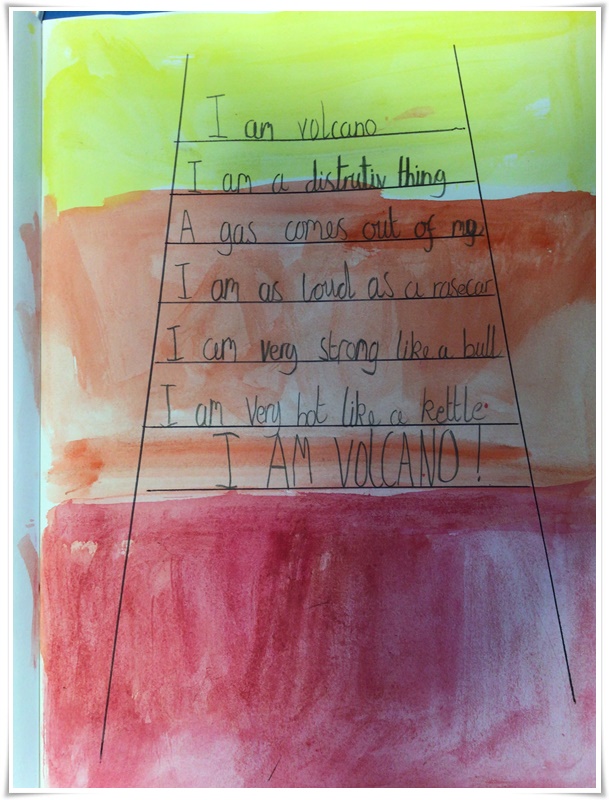 I am volcano
I am a distrutiv thing
A gas comes out of me
I am as loud as a rasecar
I am very strong like a bull
I am very hot like a kettle.
I AM VOLCANO!